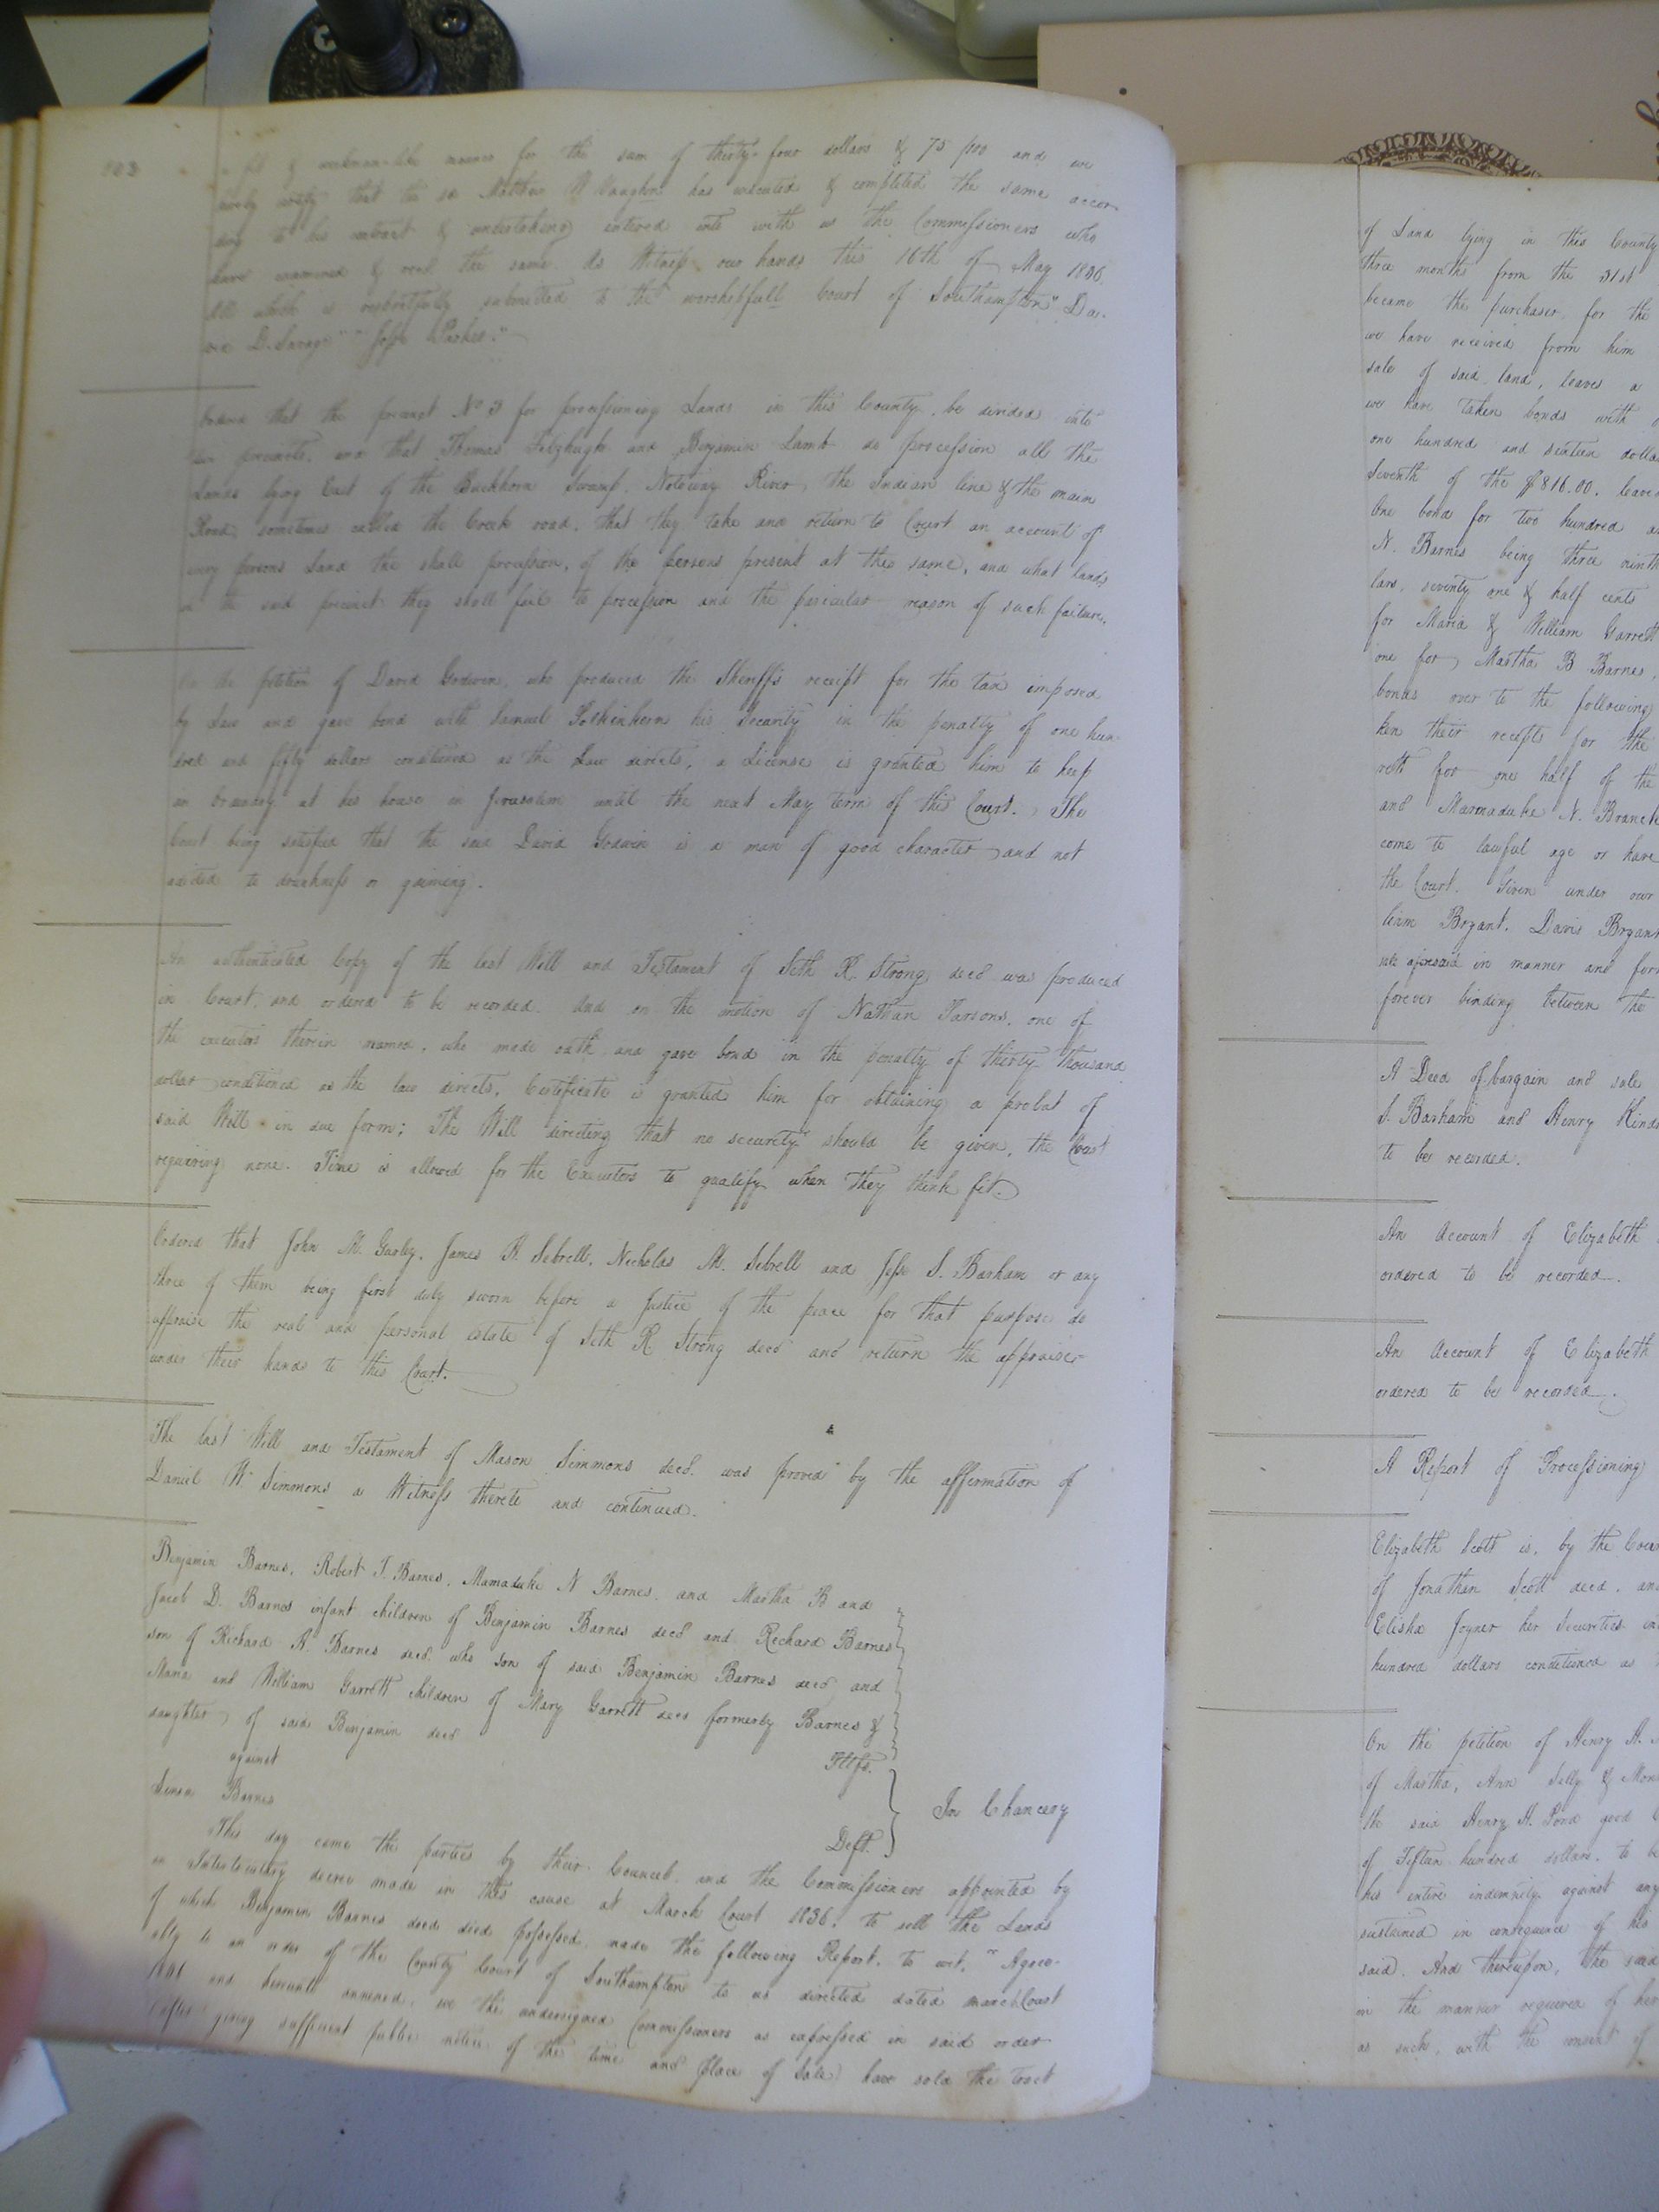 manner for the sum of thirty-four dollars & 75/100 and we
that the sd Matthew Vaughn has executed & completed the same accor-
ding to his contract & undertaking entered into with us the Commissioners who
have examined & recd the same. As Witness our hands this 16th of May 1836
All which is respectfully submitted to the worshipfull Court of Southampton" Da-
D. Savage" " Jesse Parker."
Ordered that the precinct No 3 for processioning Lands in this County, be divided into
precincts, and that Thomas Fitzhugh and Benjamin Lamb do procession all the
Lands lying East of the Buckhorn Swamp, Notoway River, the Indian line & the main
Road sometimes called the Creek road. that they take and return to Court an account of
every persons Land the shall procession, of the persons present at the same, and what lands
in the said precinct they shall fail to procession and the paricular reason of such failure.
On the petition of David Godwin, who produced the Sheriffs receipt for the tax imposed
by Law and gave bond with Samuel his Security in the penalty of one hun-
dred and fifty dollars conditioned as the Law directs, a License is granted him to keep
an Ordinary at his house in Jerusalem until the next May term of this Court. The
Court being satisfied that the said David Godwin is a man of good character and not
addicted to drunkness or gaiming.
An authenticated Copy of the last Will and Testament of Seth K. Strong decd was produced
in Court, and ordered to be recorded. And on the motion of Nathan Parsons, one of
the executors therein named, who made oath and gave bond in the penalty of thirty thousand
dollars conditioned as the law directs, Certificate is granted him for obtaining a probat of
said Will in due form; The Will directing that no security should be given, the Court
requiring none. Time is allowed for the Executors to qualify when they think fit.
Ordered that John M. Gurley, James H. Sebrell, Nicholas M. Sebrell and Jesse S. Barham or any
three of them being first duly sworn before a Justice of the peace for that purpose do
appraise the real and personal estate of Seth K Strong decd and return the appraisr
under their hands to this Court.
The last Will and Testament of Mason Simmons decd. was proved by the affermation of
Daniel W. Simmons a Witness thereto and continued.
Benjamin Barnes, Robert T. Barnes, Mamaduke N Barnes, and Martha B and
Jacob D. Barnes infant children of Benjamin Barnes decd and Richard Barnes
son of Richard R. Barnes decd. who son of said Benjamin Barnes decd and
Maria and William Garrett children of Mary Garrett decd formerly Barnes &
daughter of said Benjamin decd
Pltfs.
against
In Chancery
Simon Barnes
Deft.
This day came the parties by their Councel, and the Commissioners appointed by
an Interlocutory decree made in this cause at March Court 1836, to sell the Lands
of which Benjamin Barnes decd died possessed, made the following Report, to wit, "Agree-
ably to an order of the County Court of Southampton to us directed dated march Court
and hereunto annexed, we the undersigned Commissioners as expressed in said order
(after giving sufficient public notice of the time and place of sale) have sold the tract
of Land lying in this County
three months from the 31st
became the purchaser for the
we have received from him
sale of said land, leaves a
we have taken bonds with
one hundred and sixteen dolla
Seventh of the $816.00. leavin
One bond for two hundred a
N. Barnes being three ninth
lars, seventy one & half cents
for Maria & William Garrett
one for Martha B Barnes,
bonds over to the following
ken their receipts for the
rett for one half of the
and Marmaduke N. Branch
come to lawful age or have
the Court. Given under our
liam Bryant. Davis Bryant
aforesaid in manner and for
forever binding between the
A Deed of bargain and sale
S. Barham and Henry Kind
to be recorded.
An Account of Elizabeth
ordered to be recorded.
An Account of Elizabeth
ordered to be recorded.
A Report of Processioning
Elizabeth Scott is, by the Cour
of Jonathan Scott decd, an
Elisha Joyner her Securities in
hundred dollars conditioned as
On the petition of Henry H.
of Martha, Ann
the said Henry H. Pond good
of Fifteen hundred dollars, to be
his entire indemnity against any
sustained in consequence of his
said. And thereupon, the said
in the manner required of her
as such, with the consent of